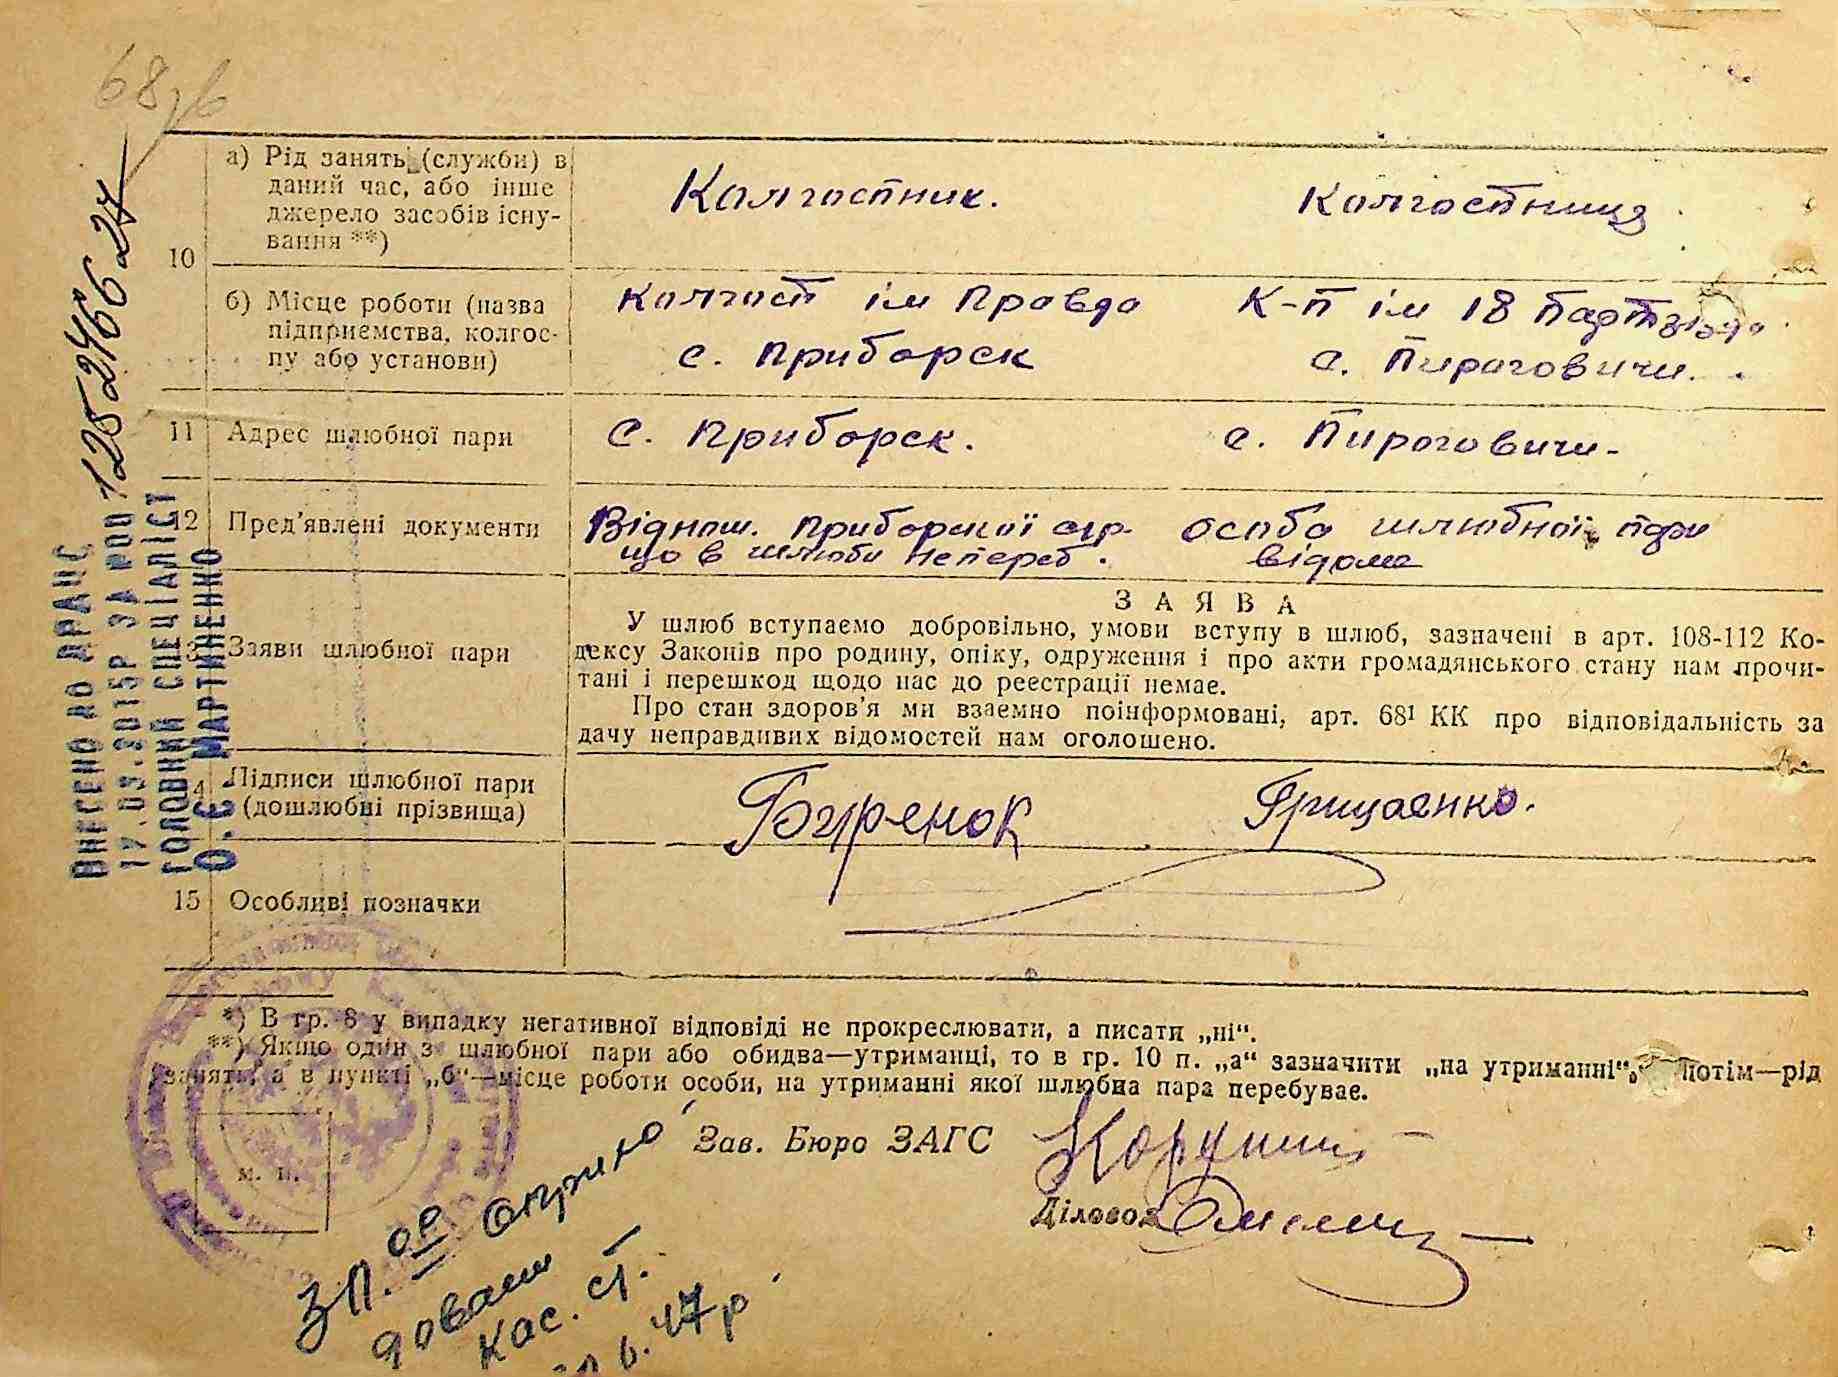 68
а) Рід занять (служби) в
даний час, або інше
джерело засобів існу-
вання **)
10
Колгоспник.
Колгоспниця
б) Місце роботи (назва
підприємства, колгос-
пу або установи)
колгосп ім Правда
с. Приборск
К-п ім 18 партз'їзда
с. Пироговичи.
11 Адрес шлюбної пари
с. Приборск.
с. Пироговичи.
12 Пред'явлені документи
Віднош. Приборскої с/р.
що в шлюби непереб.
особа шлюбної пари
відома
3 Заяви шлюбної пари
ЗАЯВА
У шлюб вступаємо добровільно, умови вступу в шлюб, зазначені в арт. 108-112 Ко-
дексу Законів про родину, опіку, одруження і про акти громадянського стану нам прочи-
тані і перешкод щодо нас до реєстрації немає.
Про стан здоров'я ми взаємно поінформовані, арт. 68¹ КК про відповідальність за
дачу неправдивих відомостей нам оголошено.
4 Підписи шлюбної пари
(дошлюбні прізвища)
Буренок
Грищенко.
15 Особливі позначки
*) В гр. 8 у випадку негативної відповіді не прокреслювати, а писати „ні“.
**) Якщо один з шлюбної пари або обидва—утриманці, то в гр. 10 п. „а“ зазначити „на утриманні“, потім—рід
занять, а в пункті „б“—місце роботи особи, на утриманні якої шлюбна пара перебуває.
Зав. Бюро ЗАГС
Діловод
м. п.
ВНЕСЕНО ДО ДРАЦС
17.03.2015Р ЗА №00125246624
ГОЛОВНИЙ СПЕЦІАЛІСТ
О.С МАРТИНЕНКО
зп.
кас. ст.
47р.